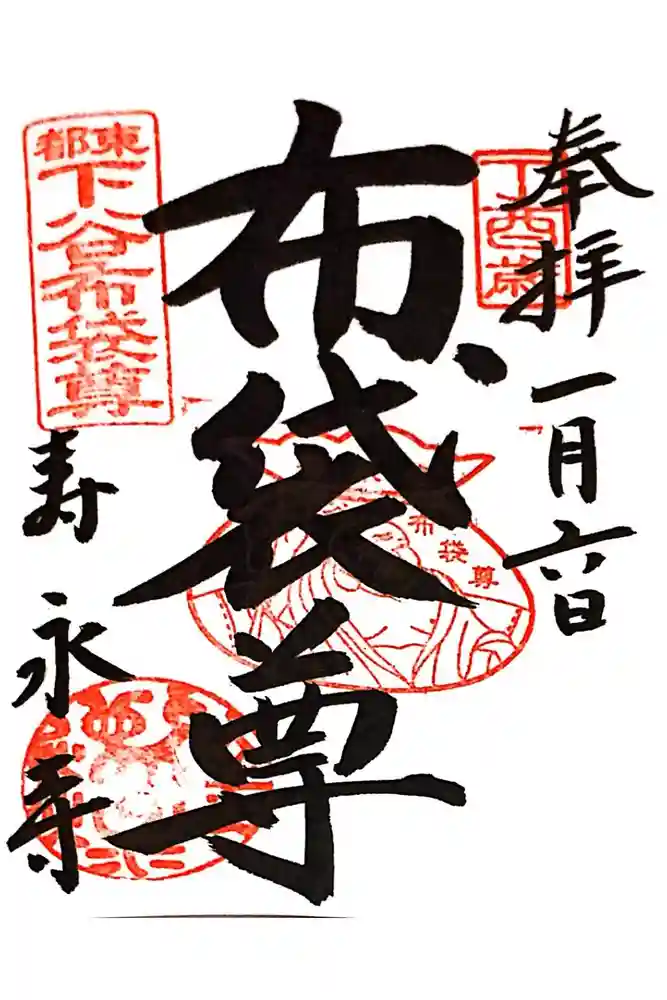 奉拝
一月六日
丁酉歳
布袋尊
布袋尊
東都
下谷布袋尊
寿永寺